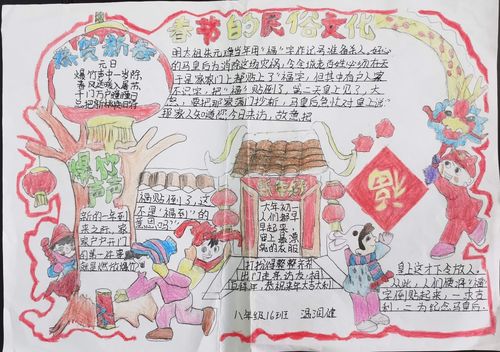 春节的民俗文化
恭贺新春
元日
爆竹声中一岁除,
春风送暖入屠苏。
千门万户曈曈日,
总把新桃换旧符
明太祖朱元璋当年用“福”字作记号准备杀人。好心
的马皇后为消除这场灾祸,令全城老百姓必须在天
于是家家门上都贴上了“福”字。但其中有户人家
不识字,把“福”贴倒了。第二天皇上见了,大
要把那家满门抄斩。马皇后急忙对皇上说:
那家人知道您今日来访,故意把
福贴倒了,这
不是“福到”的
意思吗?”
爆竹
声声
新的一年到
来之际,家
家户户开门
的第一件事
就是燃放爆竹
大年初一
人们都早
早起来,
穿上最漂
亮的衣服
打扮得整整齐齐
出门去走访亲友,相
互拜年,恭祝来年大吉大利
福
皇上这才下令放人。
从此,人们便将“福”
字倒贴起来,一求吉
利,二为纪念马皇后。
八年级16班